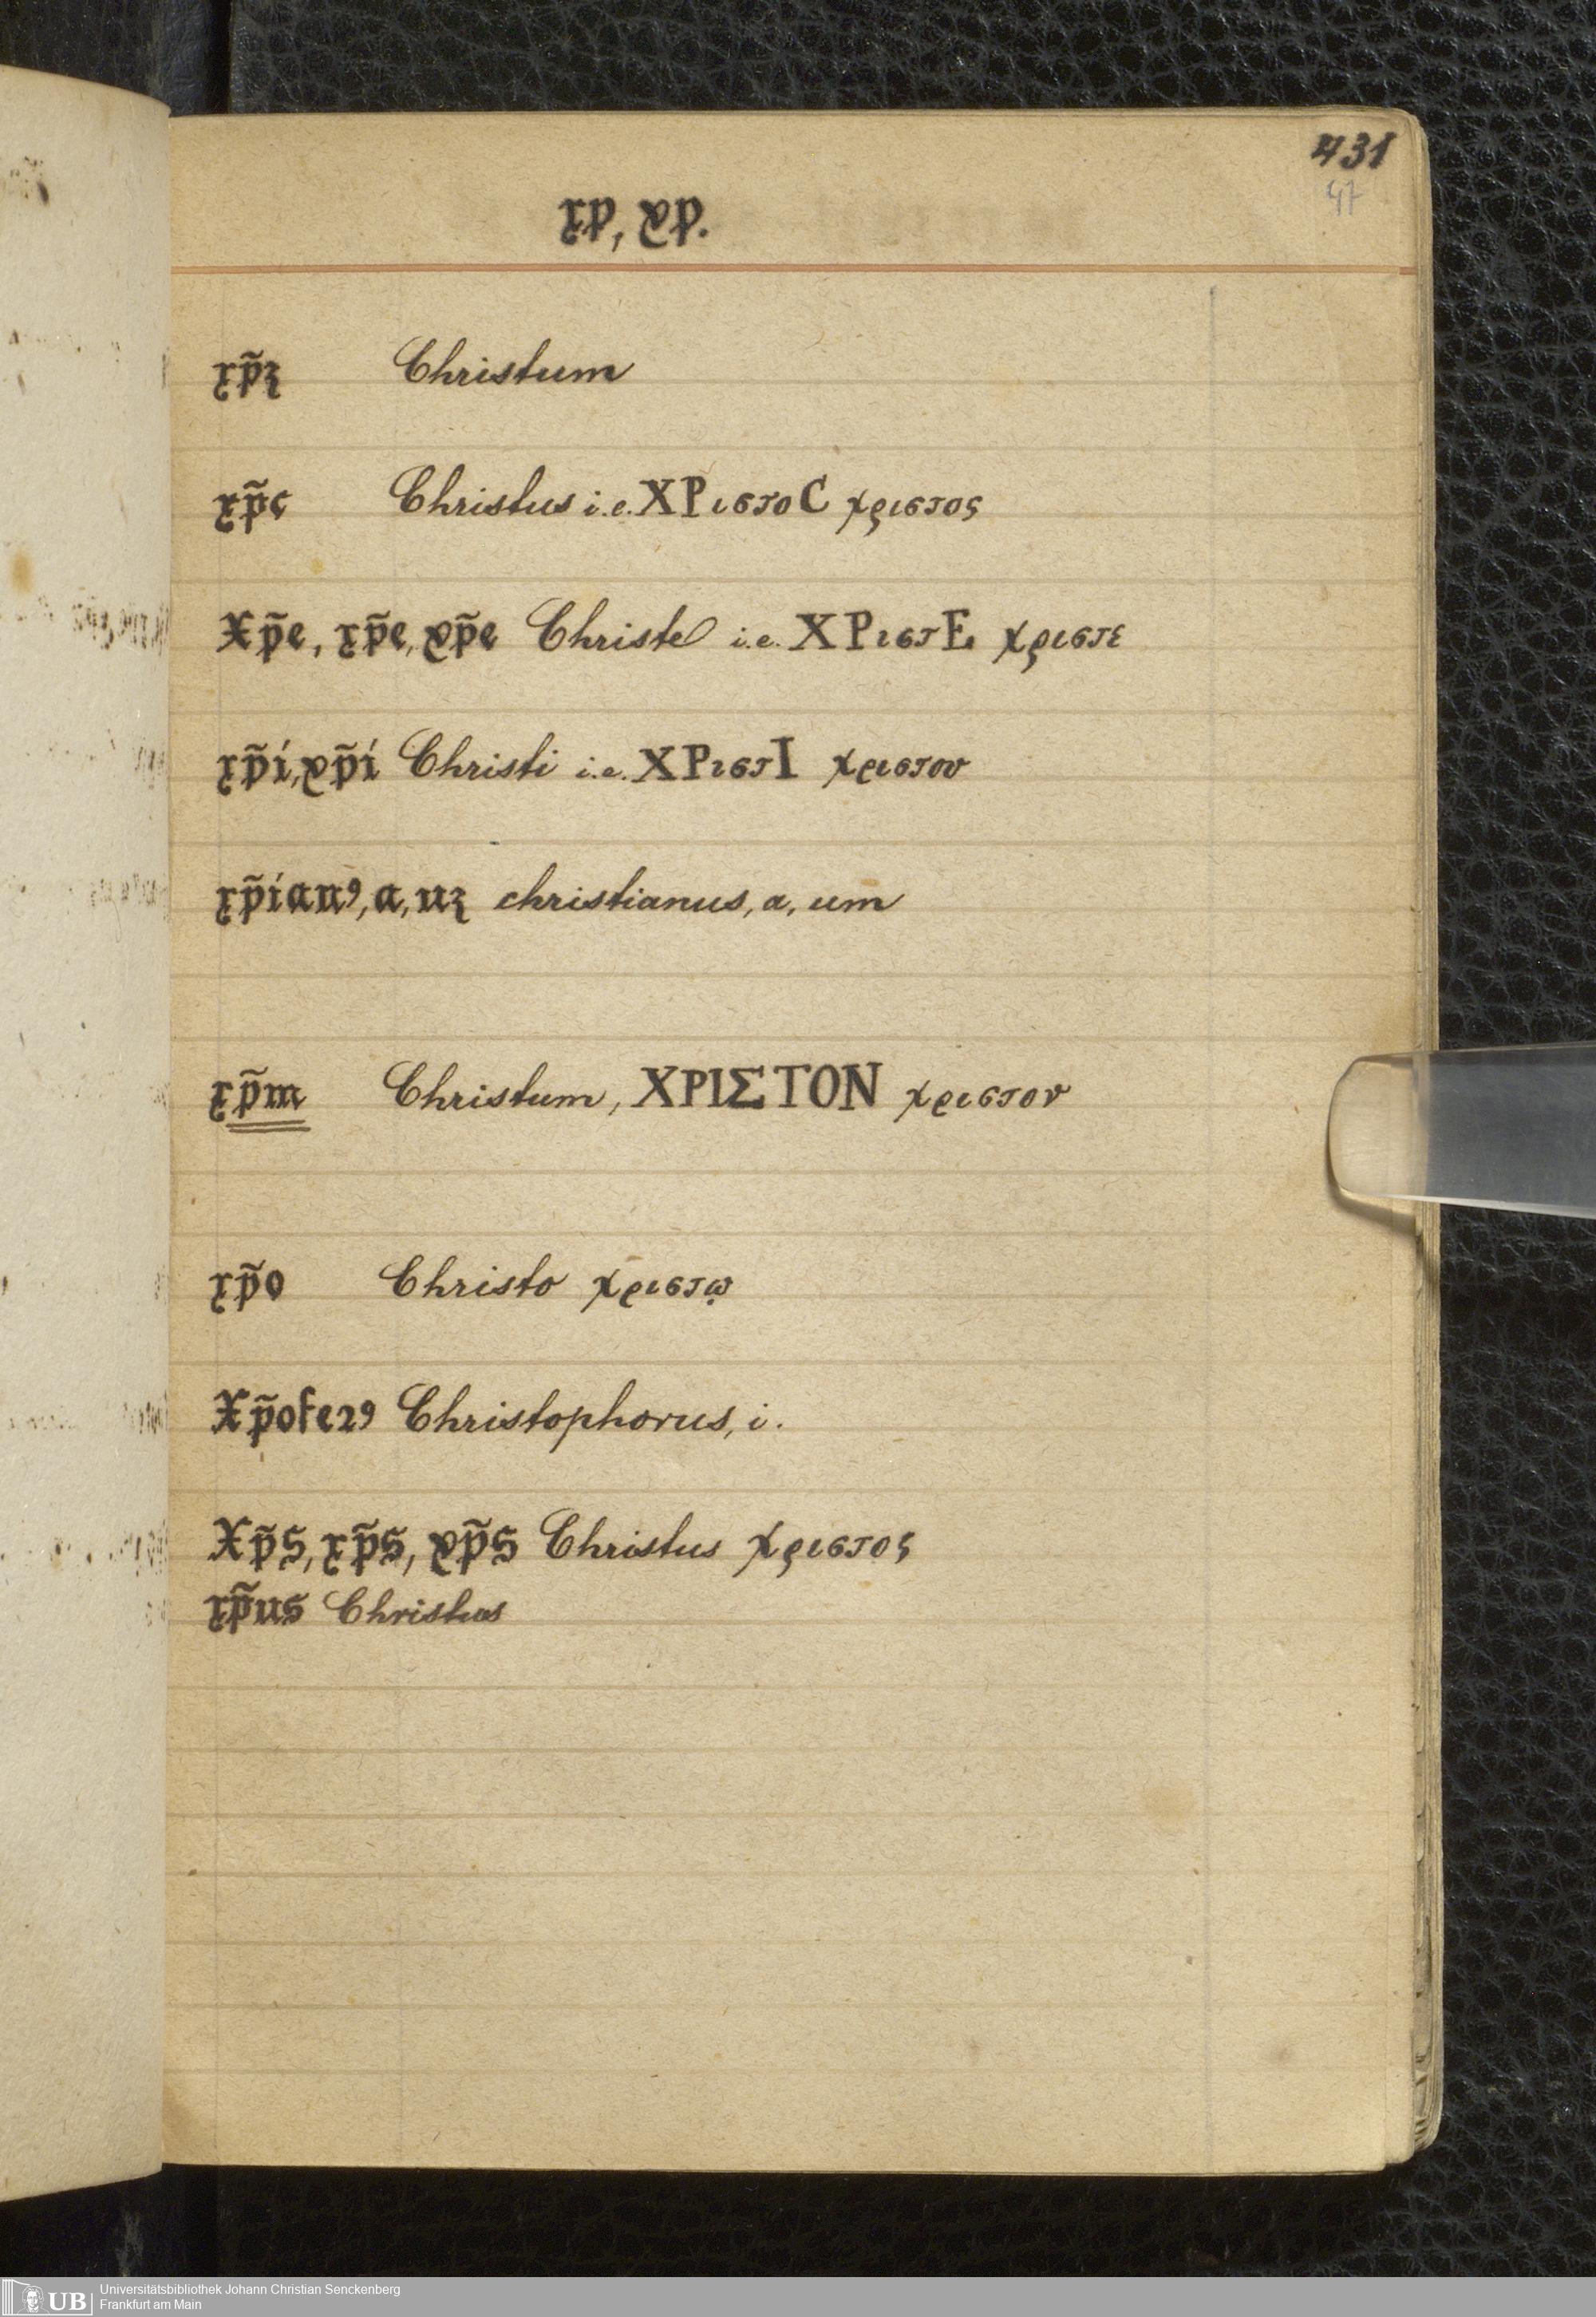 431
47
xp, xp.
xp̃ꝫ Christum
xp̃c Christus i.e. ΧΡιστοC χριστος
Xp̃e, xp̃e, xp̃e Christe i.e. ΧΡιστΕ χριστε
xp̃i, xp̃i Christi i.e. ΧΡιστΙ χριστου
xp̃ianꝯ, a, uꝫ christianus, a, um
xp̃m Christum, ΧΡΙΣΤΟΝ χριστον
xp̃o Christo χριστῳ
Xp̃ofeꝛꝯ Christophorus, i.
Xp̃s, xp̃s, xp̃s Christus χριστος
xp̃us Christus
UB Universitätsbibliothek Johann Christian Senckenberg
Frankfurt am Main